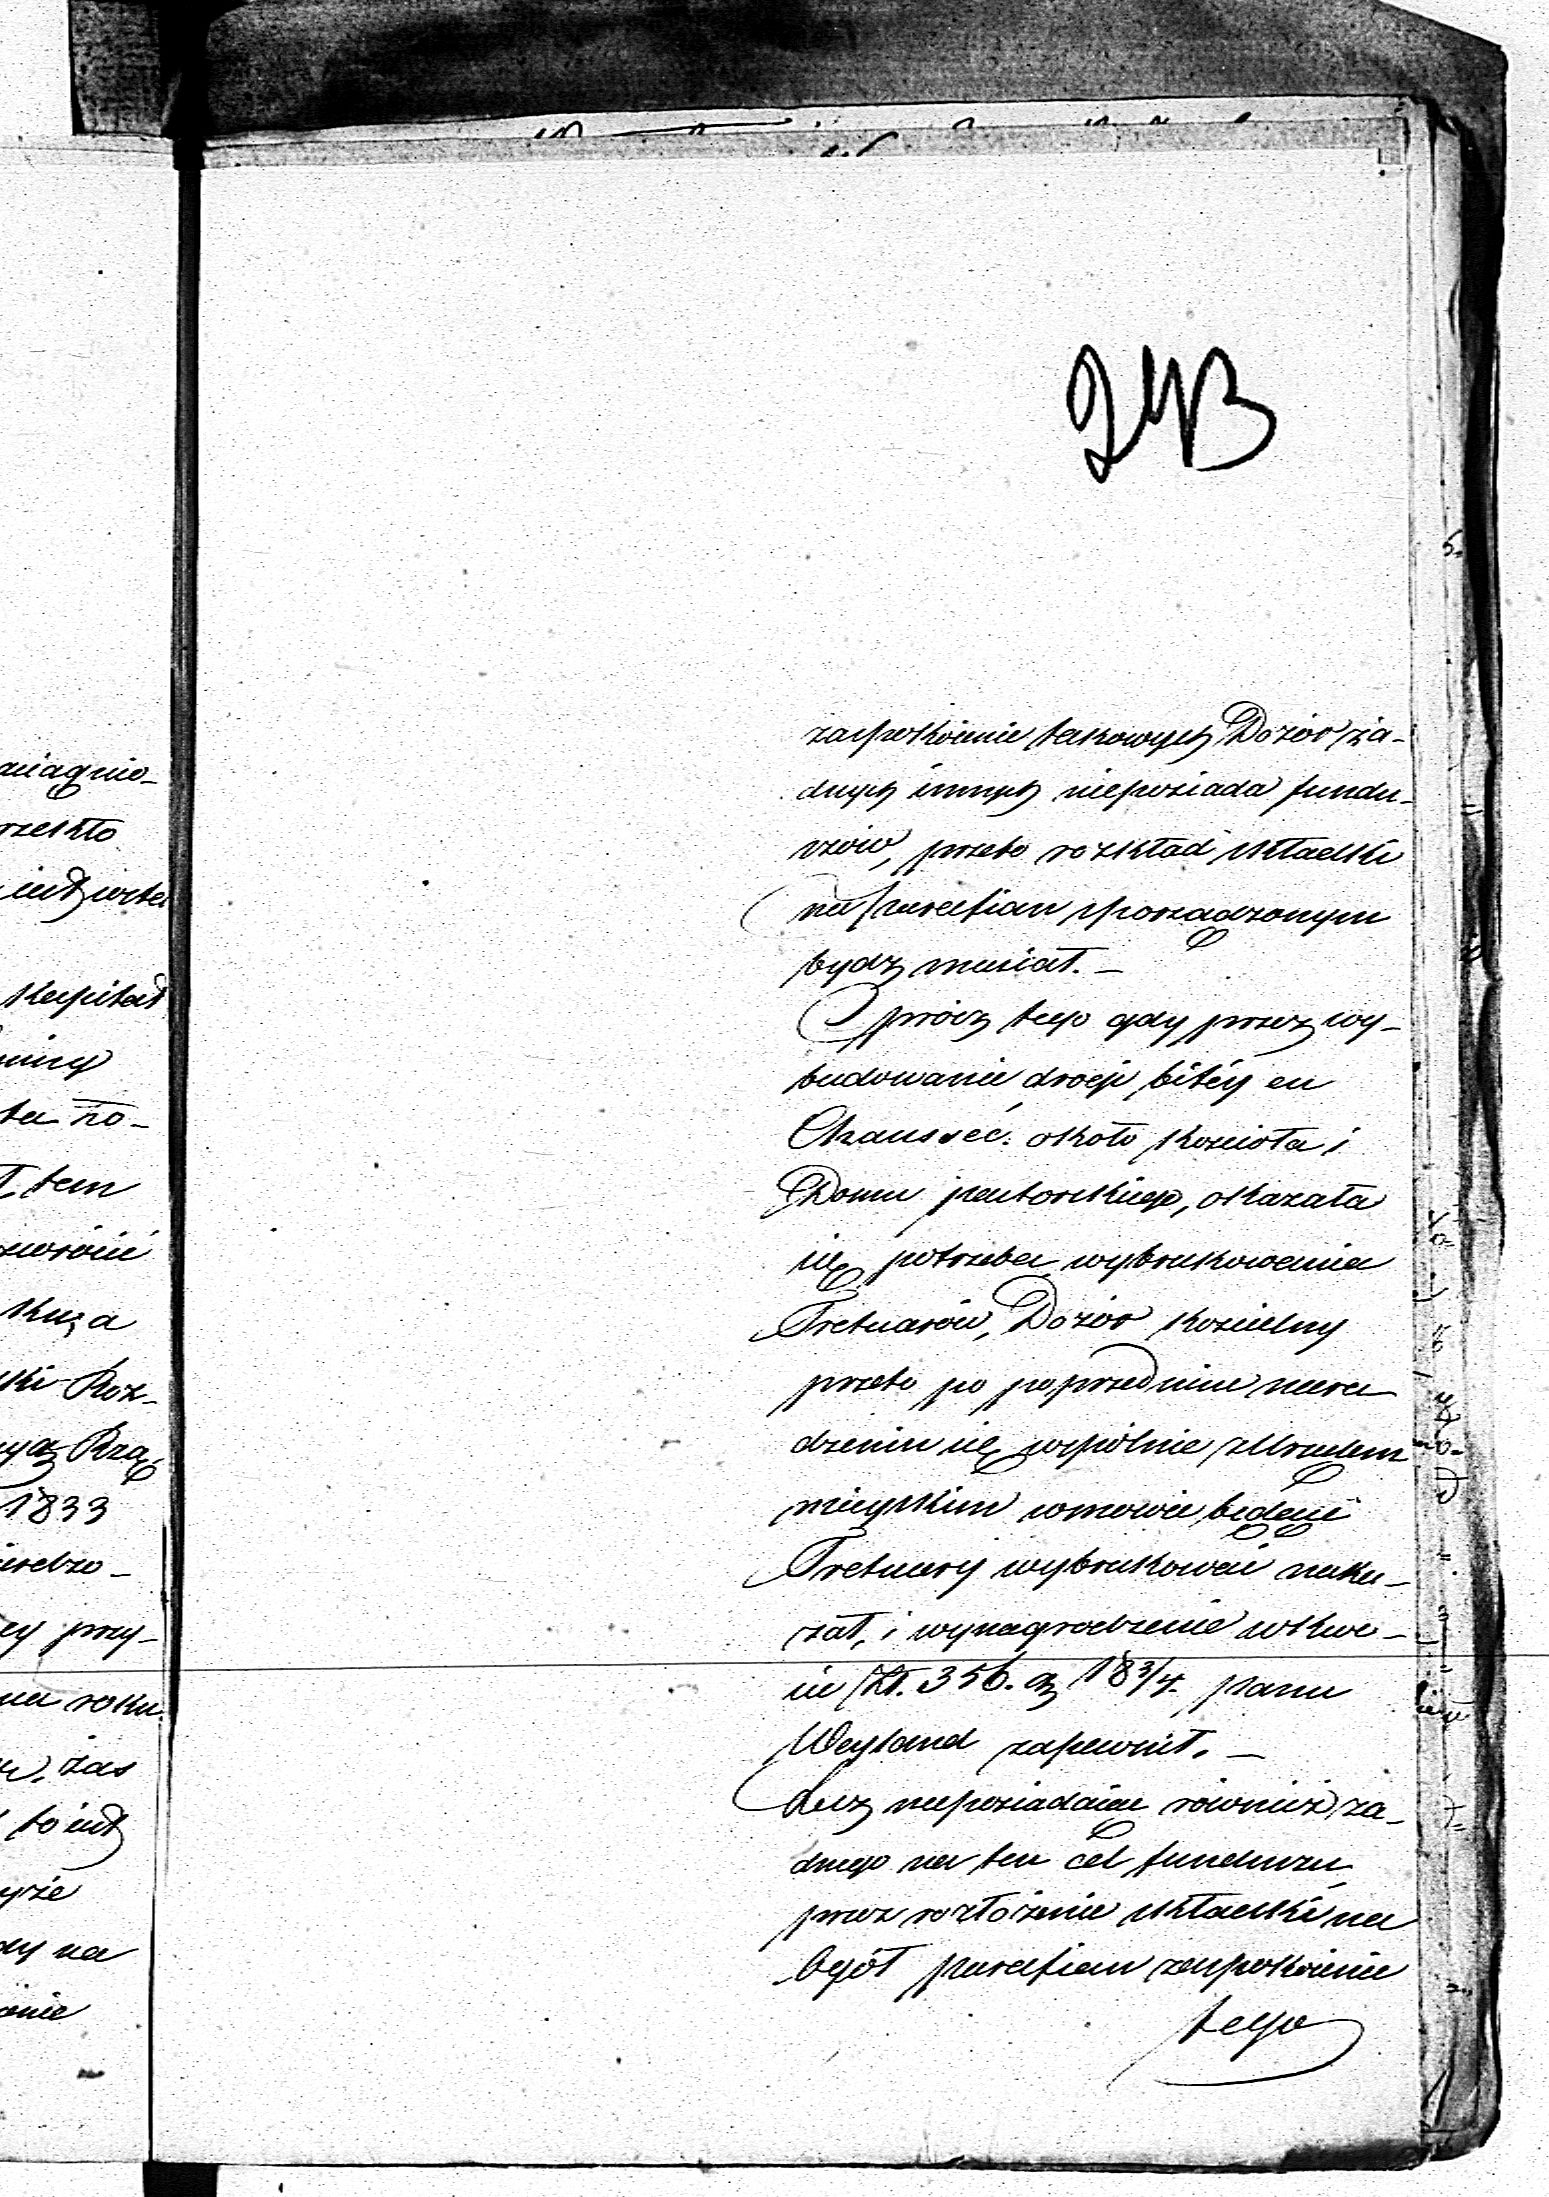 243
zaspokoienie takowych Dozór ża-
dnych innych nieposiada fundu-
szów, przeto rozkład składki
na parafian sporządzonym
bydz musiał. –
Oprócz tego gdy przez wy-
budowanie drogi bitéy en
Chaussée. około kościoła i
Domu pastorskiego, okazała
się potrzeba wybrukowania
Tretuarów, Dozór kościelny
przeto po poprzednim nara
dzeniu się wspólnie z Urzędem
mieyskim wmowie będące
Tretuary wybrukować naka-
zał, i wynagrodzenie wkwo-
cie Zł. 356. g 18 3/4. panu
Weyland zapewnił. –
Lecz nieposiadaiąc również ża-
dnego na ten cel funduszu
przez rozłożenie składki na
ogół parafian zaspokoienie
tego
aiągnio-
rzekło
iest wtes
Kapitał
miny
ta no-
ł, tem
zwrócić
ski Roz-
1833
ey przy-
na roku
zas
to iest
yże
dy na